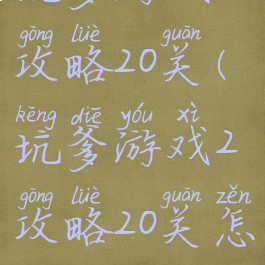 gōng lüè guān
攻略20关(
kēng diē yóu xì
坑爹游戏2
gōng lüè guān zěn
攻略20关怎